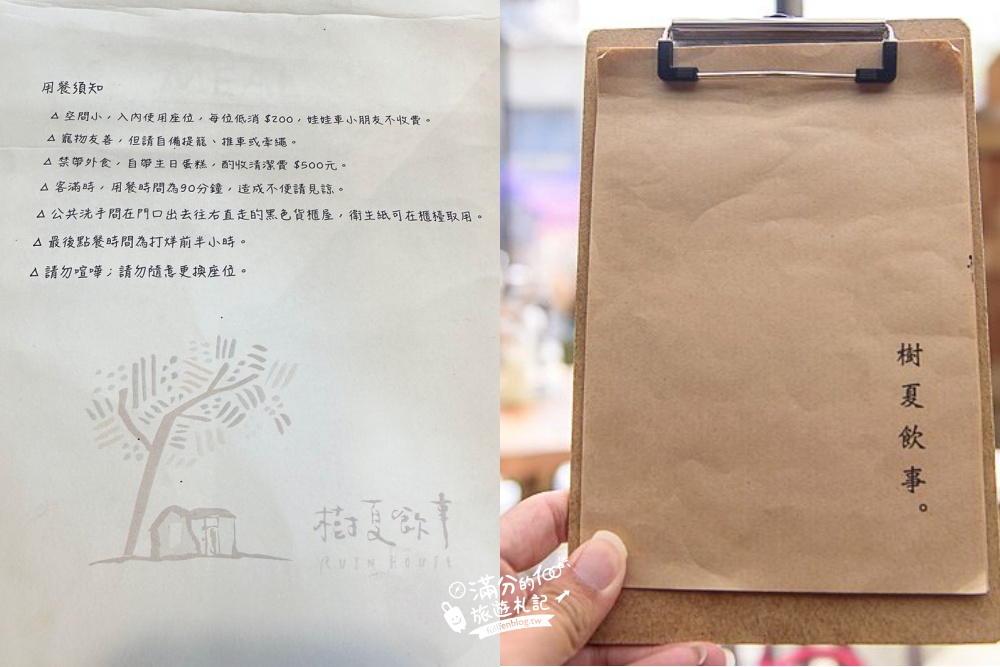 用餐須知
△ 空間小，入內使用座位，每位低消 $200，娃娃車小朋友不收費。
△ 寵物友善，但請自備提籠、推車或牽繩。
△ 禁帶外食，自帶生日蛋糕，酌收清潔費 $500元。
△ 客滿時，用餐時間為90分鐘，造成不便請見諒。
△ 公共洗手間在門口出去往右直走的黑色貨櫃屋，衛生紙可在櫃檯取用。
△ 最後點餐時間為打烊前半小時。
△ 請勿喧嘩；請勿隨意更換座位。
樹夏飲事
RUIN HOUSE
樹夏飲事。
滿分的100
旅遊札記
fullfenblog.tw